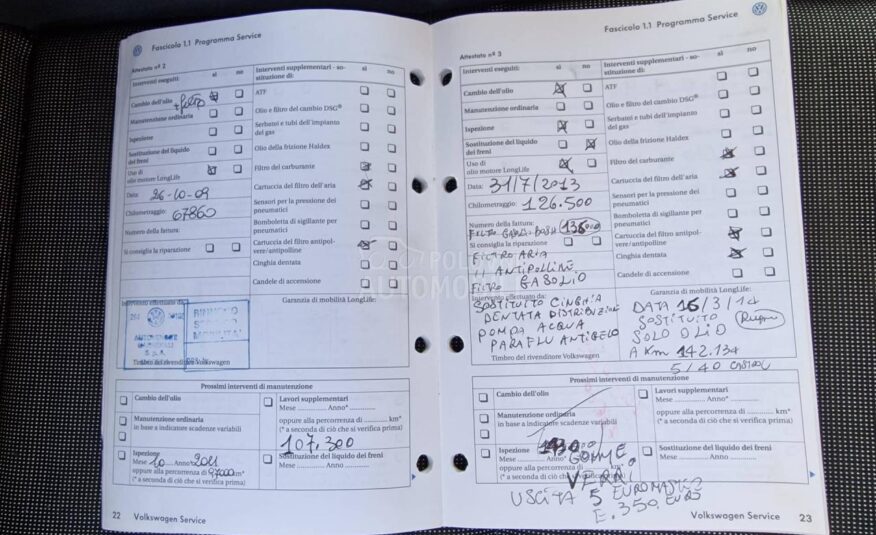 Fascicolo 1.1 Programma Service
Attestato nº 2
Interventi eseguiti: sì no
Interventi supplementari - sostituzione di: sì no
Cambio dell'olio
Manutenzione ordinaria
Ispezione
Sostituzione del liquido
dei freni
Uso di
olio motore LongLife
Data: 26-10-09
Chilometraggio: 67860
Numero della fattura:
Si consiglia la riparazione
ATF
Olio e filtro del cambio DSG®
Serbatoi e tubi dell'impianto
del gas
Olio della frizione Haldex
Filtro del carburante
Cartuccia del filtro dell'aria
Sensori per la pressione dei
pneumatici
Bomboletta di sigillante per
pneumatici
Cartuccia del filtro antipol-
vere/antipolline
Cinghia dentata
Candele di accensione
Intervento effettuato da:
RINNOVO
MOBILITA'
Timbro del rivenditore Volkswagen
Garanzia di mobilità LongLife:
Prossimi interventi di manutenzione
Cambio dell'olio
Manutenzione ordinaria
in base a indicatore scadenze variabili
Ispezione
Mese 10 Anno 2011
oppure alla percorrenza di 97000 km*
(* a seconda di ciò che si verifica prima)
Lavori supplementari
Mese ........... Anno* ...........
oppure alla percorrenza di ........... km*
(* a seconda di ciò che si verifica prima)
107.300
Sostituzione del liquido dei freni
Mese ........... Anno ...........
22 Volkswagen Service
Fascicolo 1.1 Programma Service
Attestato nº 3
Interventi eseguiti: sì no
Interventi supplementari - so-
stituzione di: sì no
Cambio dell'olio
Manutenzione ordinaria
Ispezione
Sostituzione del liquido
dei freni
Uso di
olio motore LongLife
Data: 31/7/2013
Chilometraggio: 126.500
Numero della fattura:
Si consiglia la riparazione
FILTRO ARIA
11 ANTIPOLLINE
FILTRO GASOLIO
ATF
Olio e filtro del cambio DSG®
Serbatoi e tubi dell'impianto
del gas
Olio della frizione Haldex
Filtro del carburante
Cartuccia del filtro dell'aria
Sensori per la pressione dei
pneumatici
Bomboletta di sigillante per
pneumatici
Cartuccia del filtro antipol-
vere/antipolline
Cinghia dentata
Candele di accensione
Intervento effettuato da:
SOSTITUITO CINGHIA
DENTATA DISTRIBUZIONE
POMPA ACQUA
PARAFLU ANTIGELO
Timbro del rivenditore Volkswagen
Garanzia di mobilità LongLife:
DATA 16/3/14
SOSTITUITO
SOLO OLIO
A Km 142.134
5/40 CASTROL
Prossimi interventi di manutenzione
Cambio dell'olio
Manutenzione ordinaria
in base a indicatore scadenze variabili
Ispezione
oppure alla percorrenza di km*
(* a seconda di ciò che si verifica prima)
Lavori supplementari
Mese ........... Anno* ...........
oppure alla percorrenza di ........... km*
(* a seconda di ciò che si verifica prima)
Sostituzione del liquido dei freni
Mese ........... Anno ...........
GOMME
USCITA 5 EUROMASTER
E. 350 EURO
Volkswagen Service 23